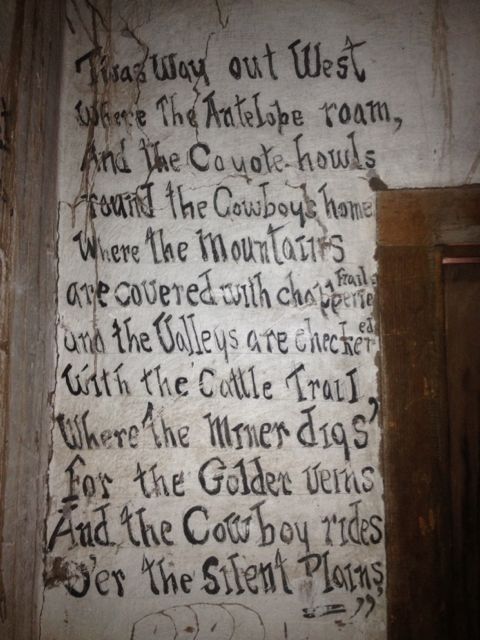 'Twas Way out West
Where The Antelope roam,
And the Coyote howls
round the Cowboys home
Where the Mountains
are covered with chapperiel frail
and the Valleys are checkered
With the Cattle Trail,
Where the Miner digs
For the Golden veins
And the Cowboy rides
O'er the Silent Plains,"